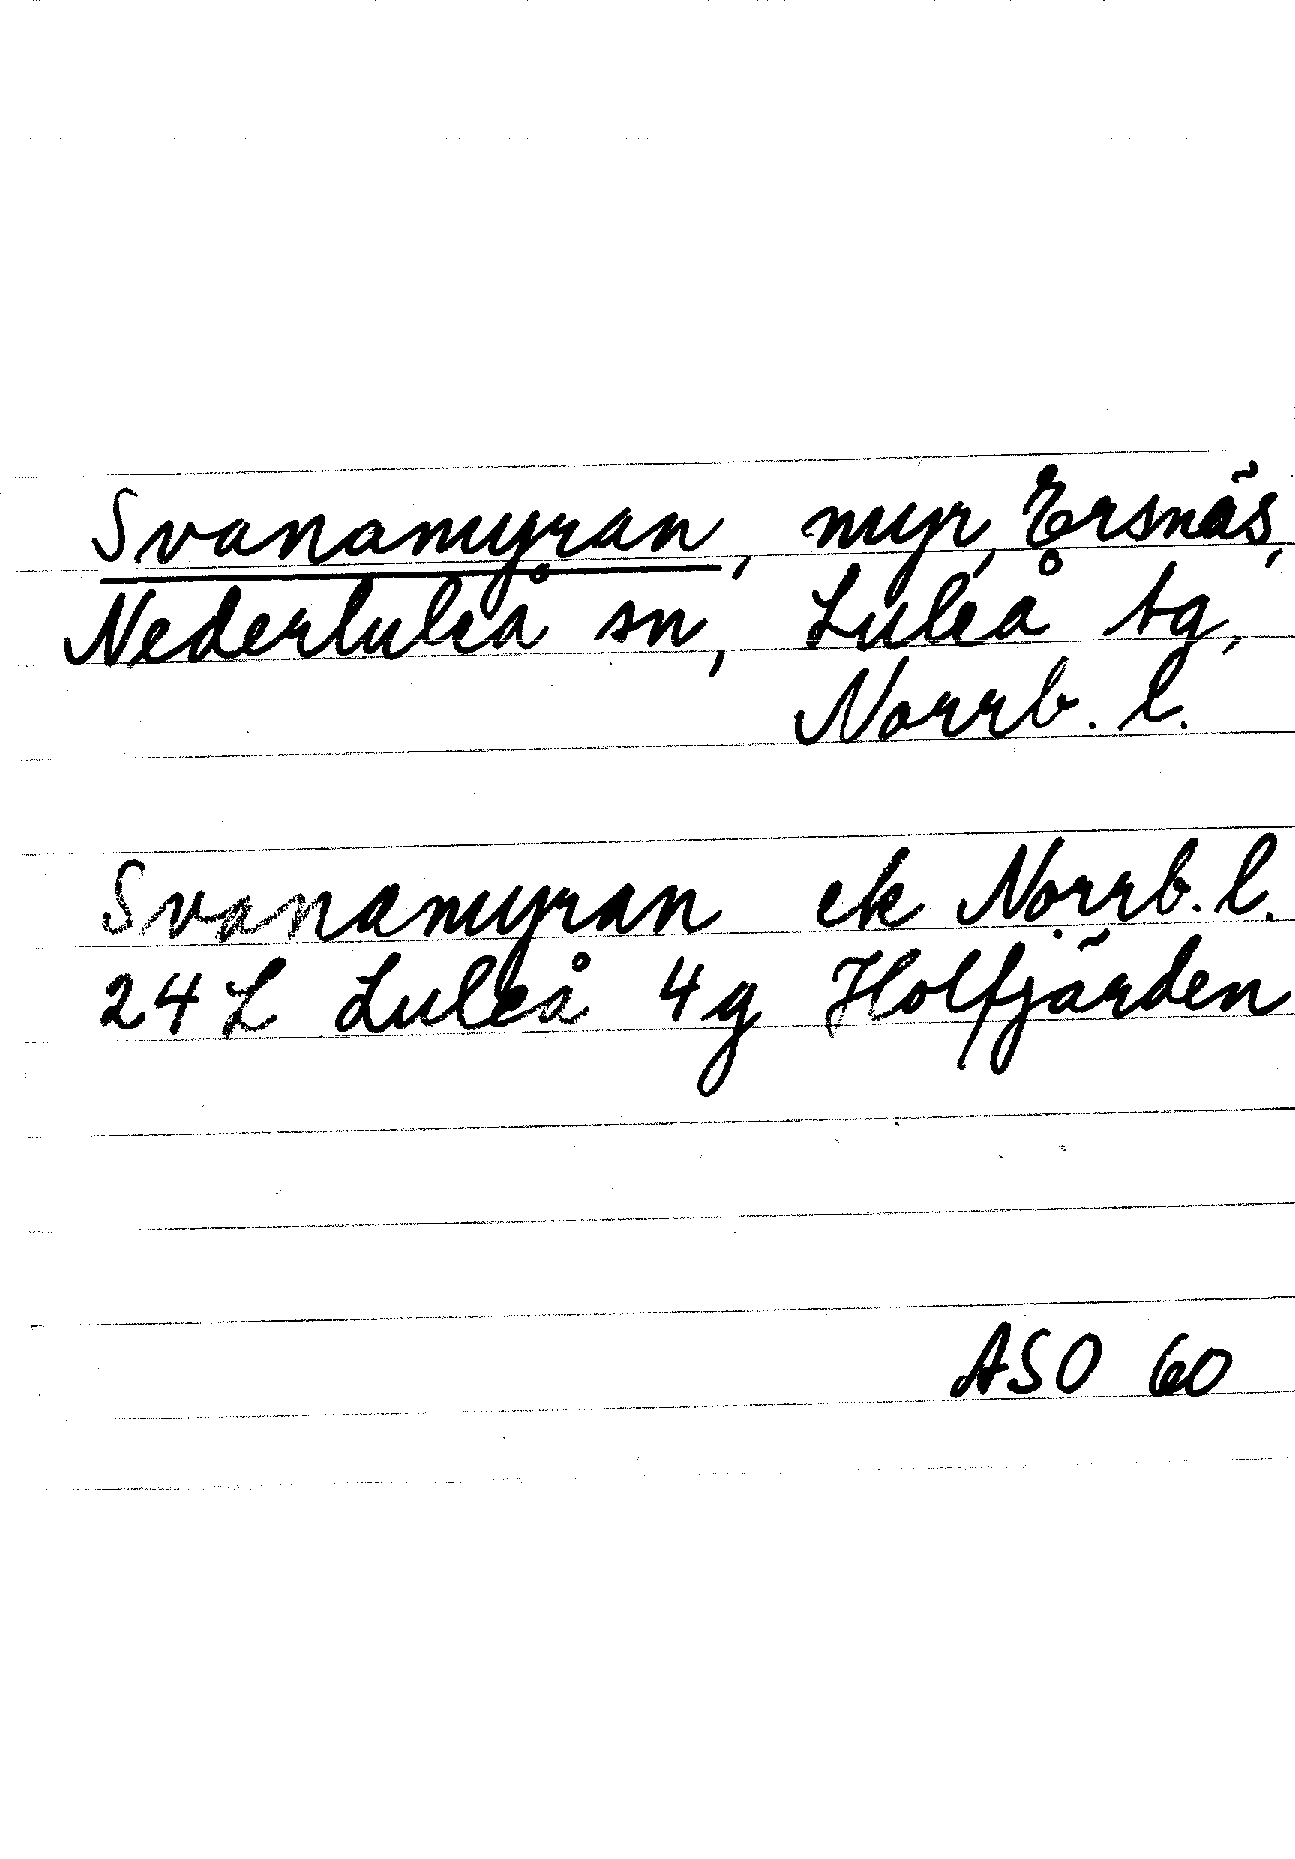 Svanamyran, myr, Ersnäs,
Nederluleå sn, Luleå tg,
Norrb. l.
Svanamyran ek Norrb. l.
24 L Luleå 4 g Holfjärden
ASO 60